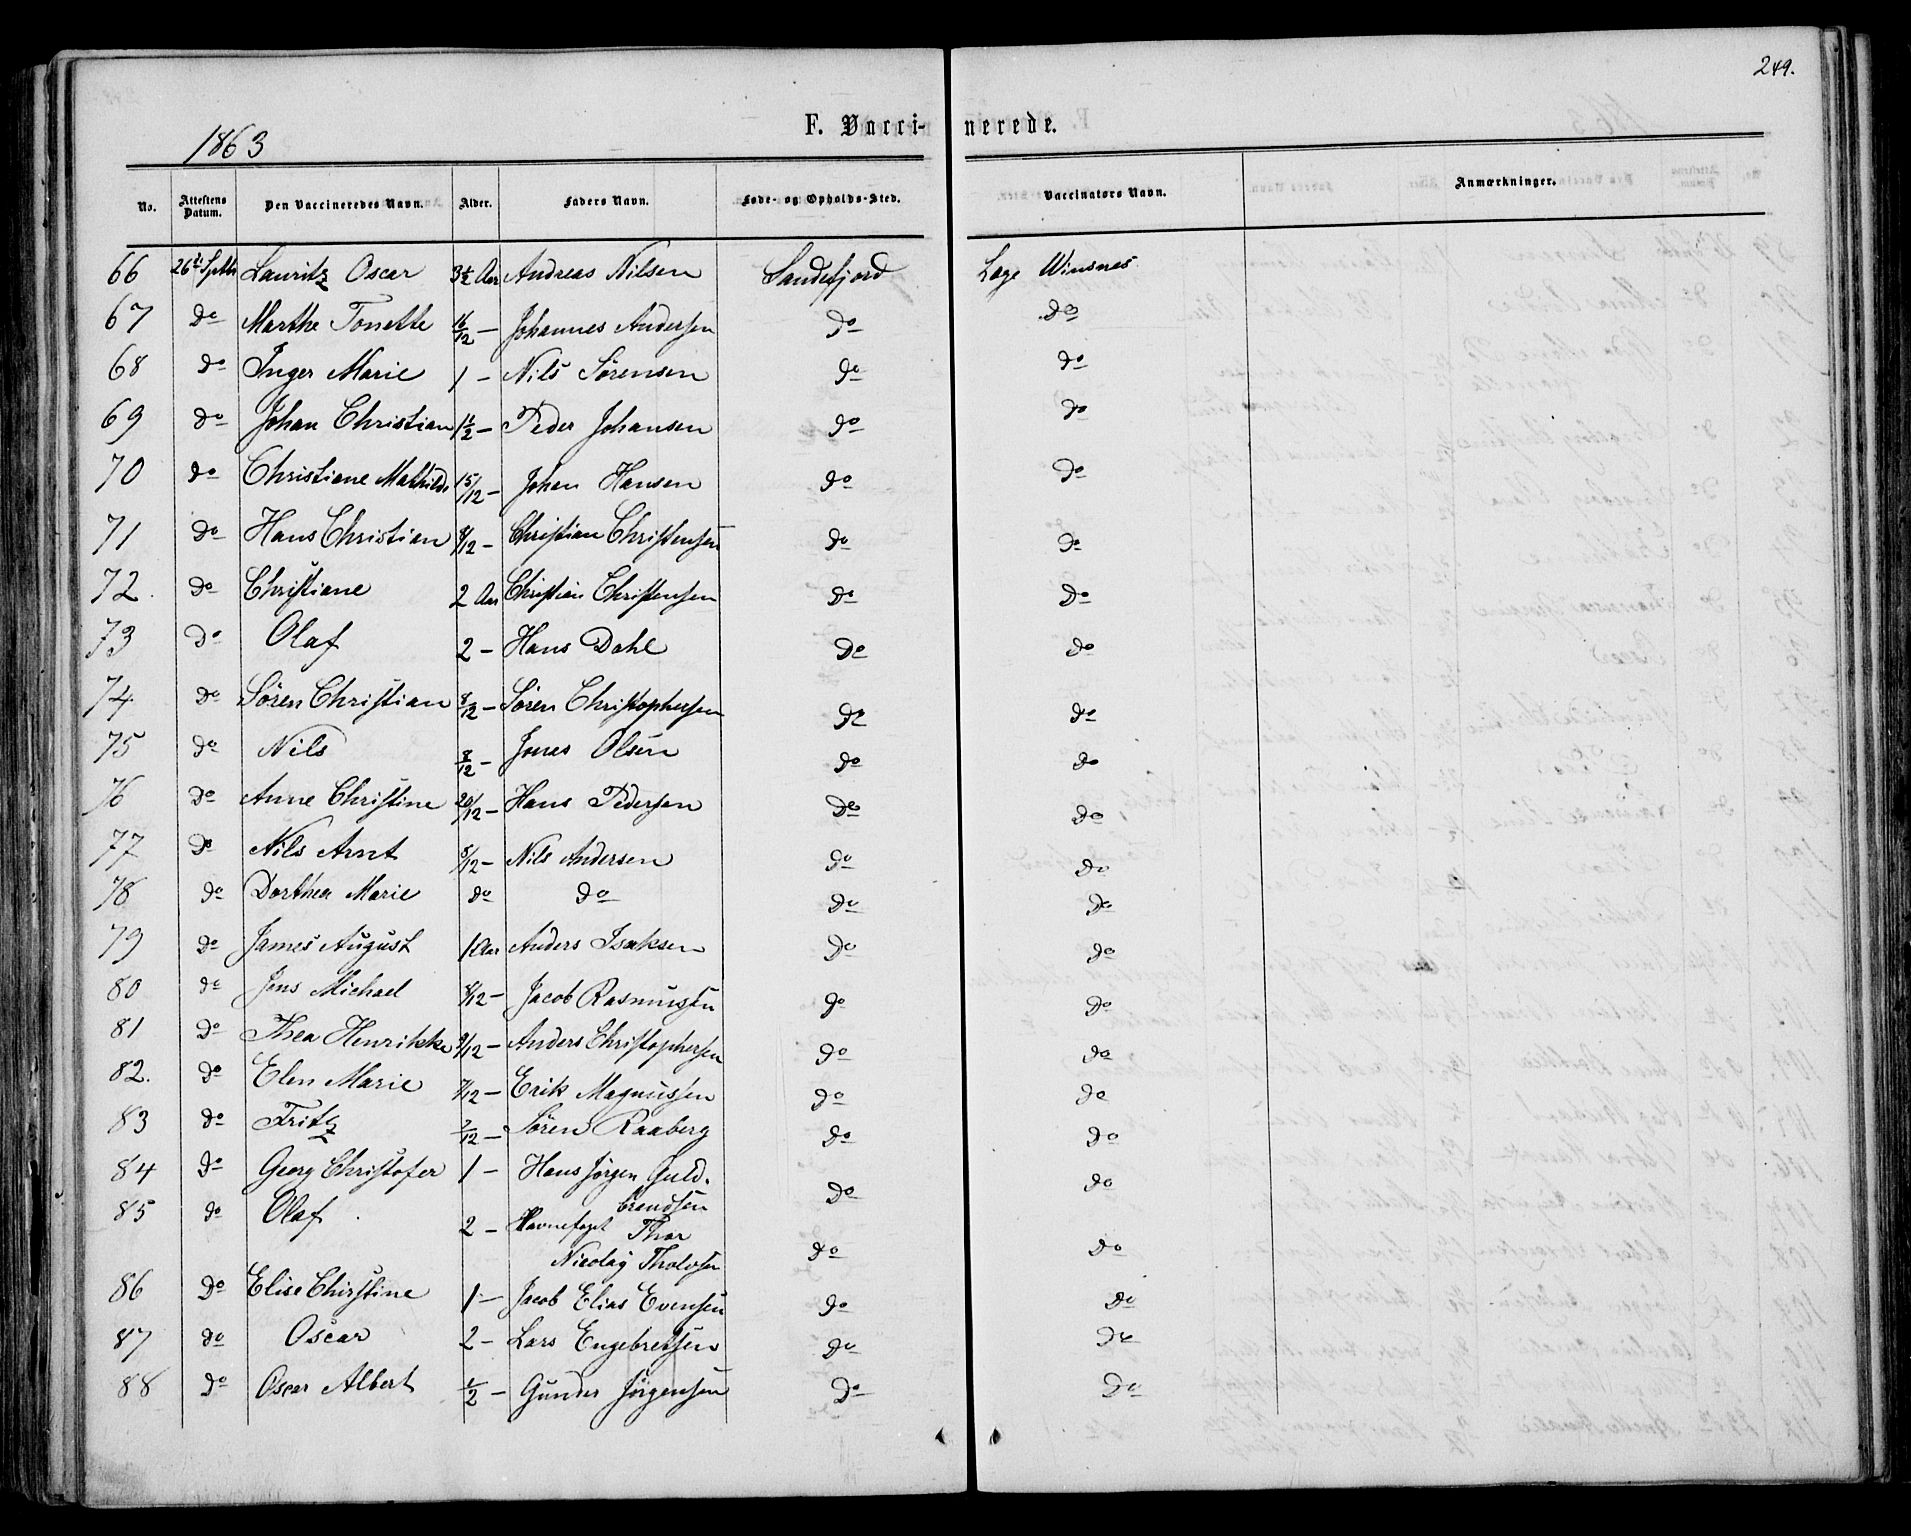 249.
1863
F. Vacci- nerede.
No. Attestens Datum. Den Vaccineredes Navn. Alder. Faders Navn. Føde- og Opholds-Sted. Vaccinators Navn. Anmærkninger.
66 26 Septbr Lauritz Oscar 3½ Aar Andreas Nilsen Sandefjord Læge Winsnes
67 do Marthe Tonette 16/12 — Johannes Andersen do do
68 do Inger Marie 1 — Nils Sørensen do do
69 do Johan Christian 1½ — Peder Johansen do do
70 do Christiane Mathilde 15/12 — Johan Hansen do do
71 do Hans Christian 8/12 — Christian Christensen do do
72. do Christiane 2 Aar Christian Christensen do do
73 do Olaf 2 — Hans Dahl do do
74 do Søren Christian 8/12 — Søren Christophersen do do
75 do Nils 8/12 — Jonas Olsen do do
76 do Anne Christine 20/12 — Hans Pedersen do do
77 do Nils Arnt 5/12 — Nils Andersen do do
78 do Dorthea Marie do do do do
79 do James August 1 Aar Anders Isaksen do do
80 do Jens Michael 8/12 — Jacob Rasmussen do do
81 do Thea Henrikke 9/12 — Anders Christophersen do do
82. do Elen Marie 7/12 — Erik Magnussen do do
83 do Fritz 7/12 — Søren Raaberg do do
84 do Georg Christofer 1 — Hans Jørgen Guld- do do
brandsen
85 do Olaf 2 — Havnefoget Thor
Nicolay Tholvsen do do
86 do Elise Christine 1 — Jacob Elias Evensen do do
87 do Oscar 2 — Lars Engebretsen do do
88 do Oscar Albert ½ — Gunder Jørgensen do do